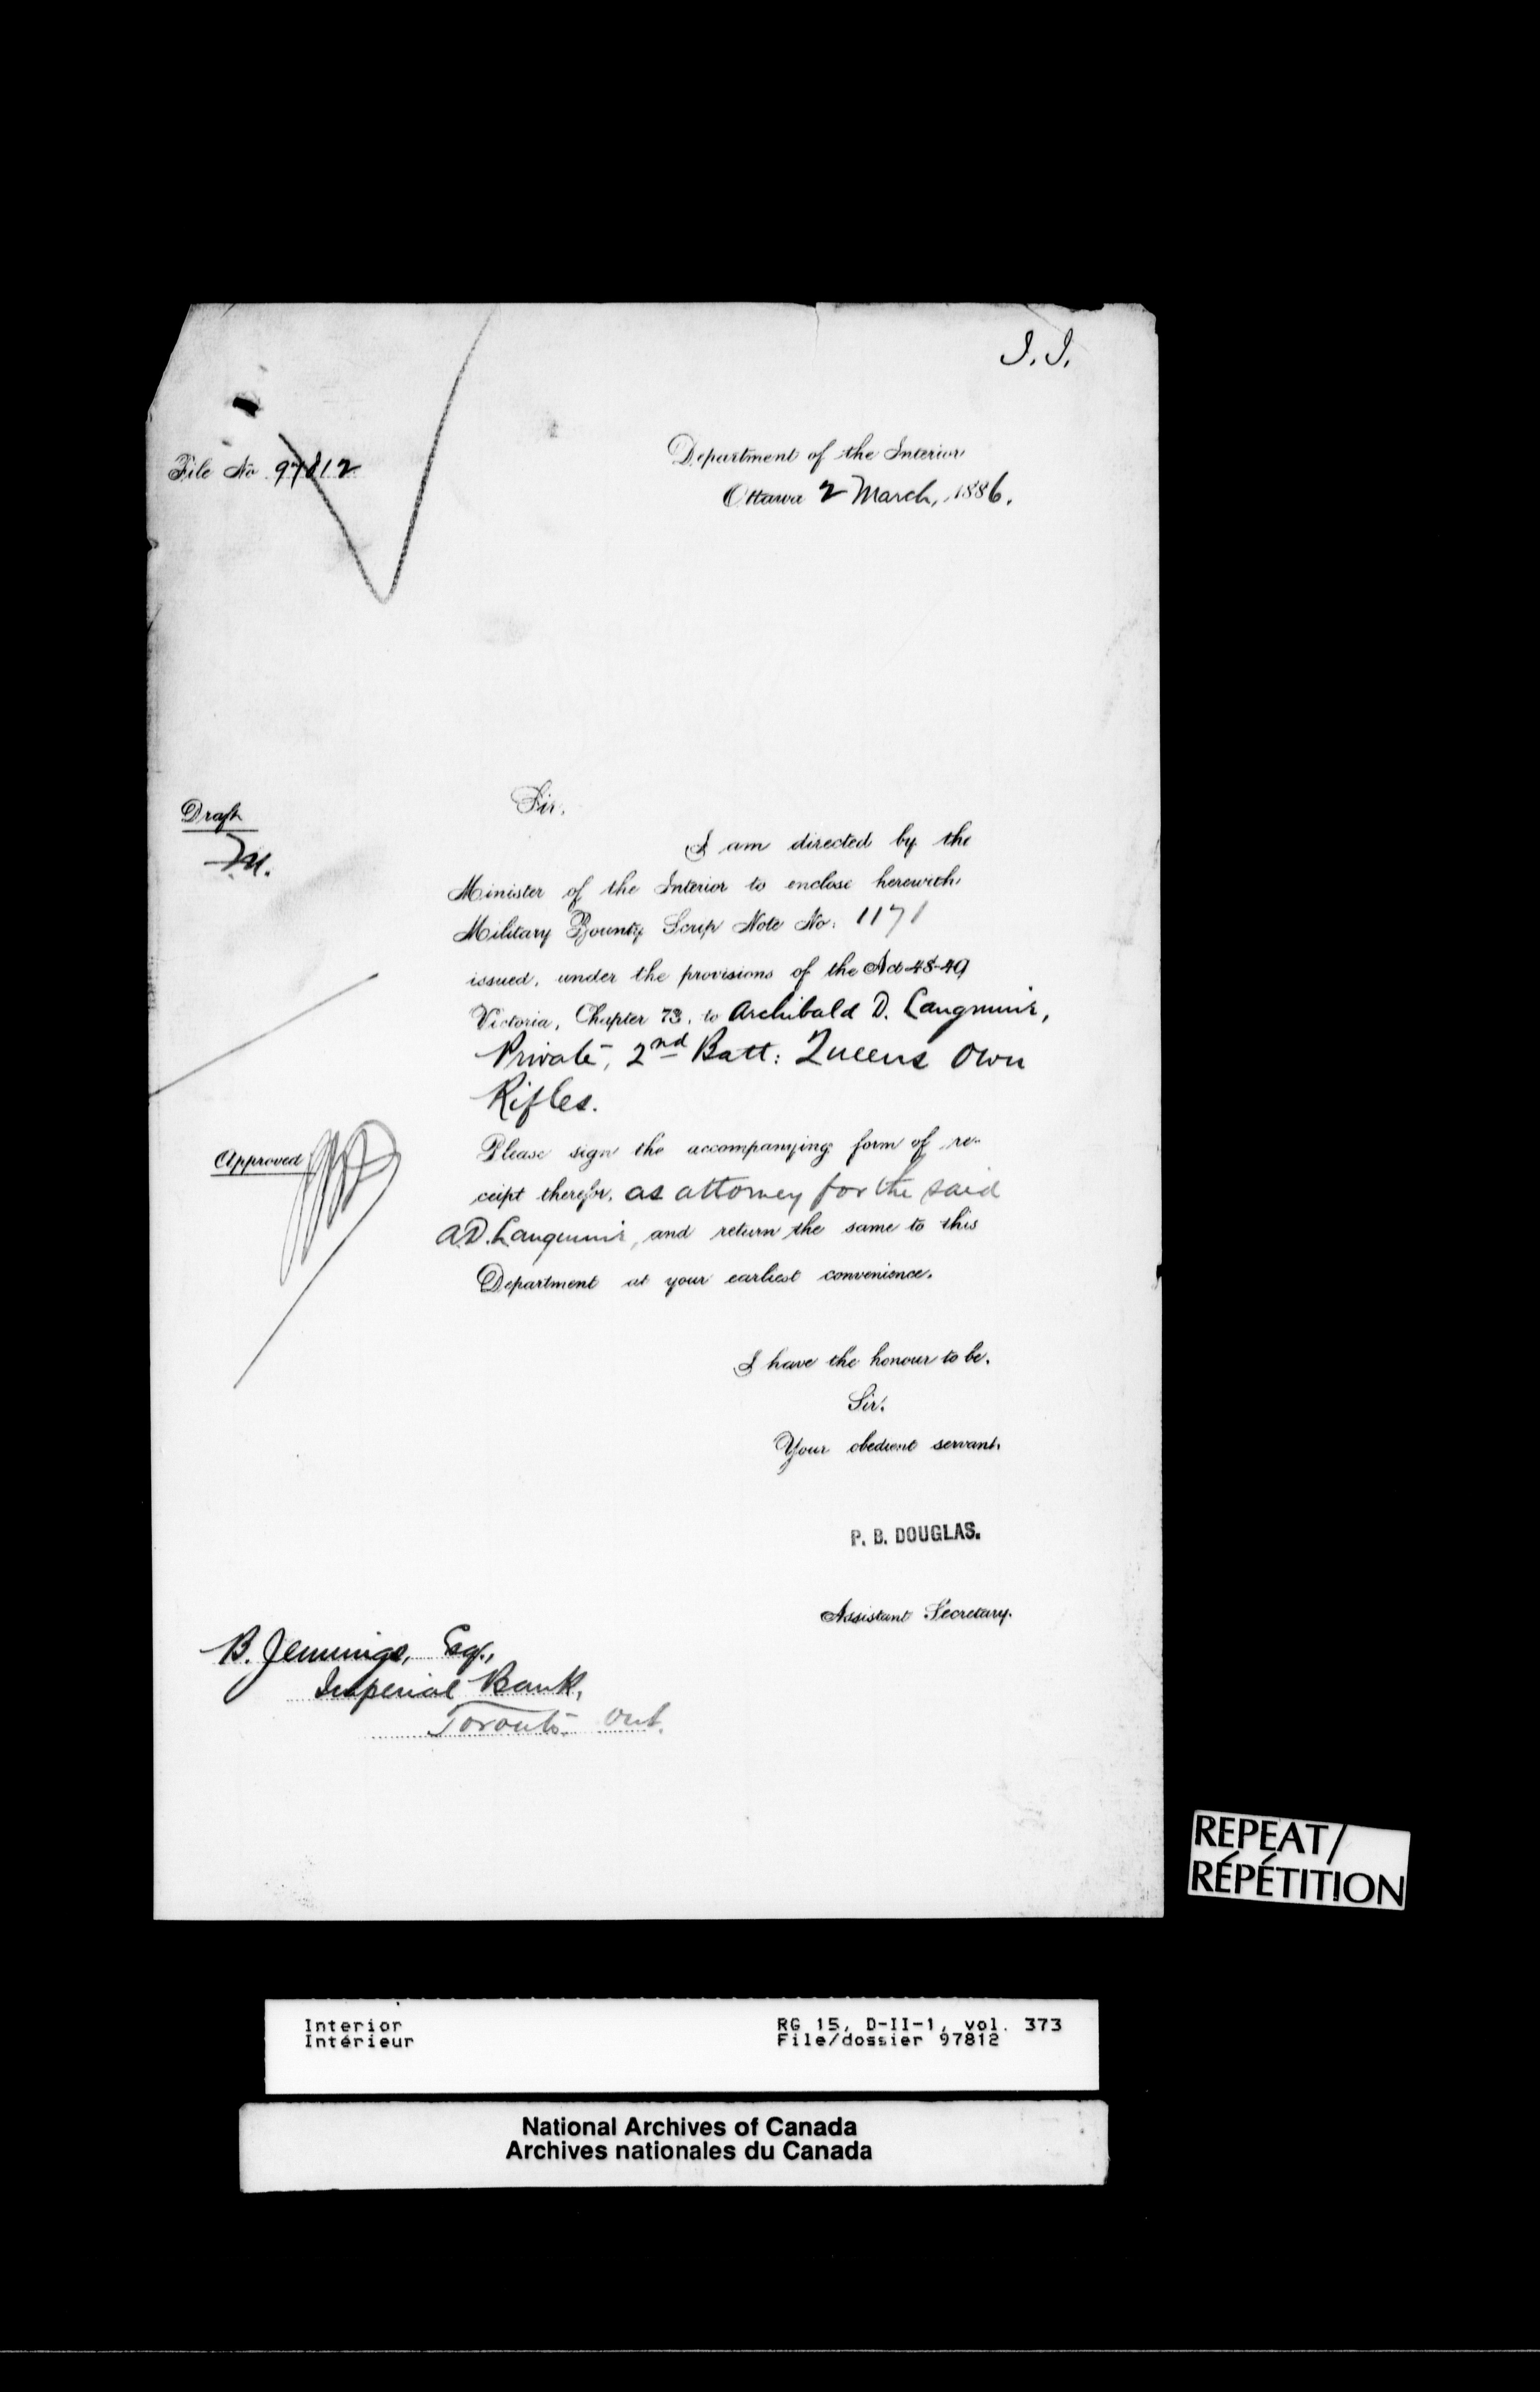 I. I.
File No 97812
Department of the Interior
Ottawa 2 March, 1886.
Draft
Sir,
I am directed by the
Minister of the Interior to enclose herewith
Military Bounty Scrip Note No. 1171
issued, under the provisions of the Act 48-49
Victoria, Chapter 73, to Archibald D. Langmuir,
Private, 2nd Batt: Queens Own
Rifles.
Approved
Please sign the accompanying form of re-
ceipt therefor, as attorney for the said
A.D. Langmuir, and return the same to this
Department at your earliest convenience.
I have the honour to be,
Sir,
Your obedient servant,
P. B. DOUGLAS.
Assistant Secretary.
B. Jennings, Esq.,
Imperial Bank,
Toronto Ont.
REPEAT/
RÉPÉTITION
Interior RG 15, D-II-1, vol. 373
Intérieur File/dossier 97812
National Archives of Canada
Archives nationales du Canada